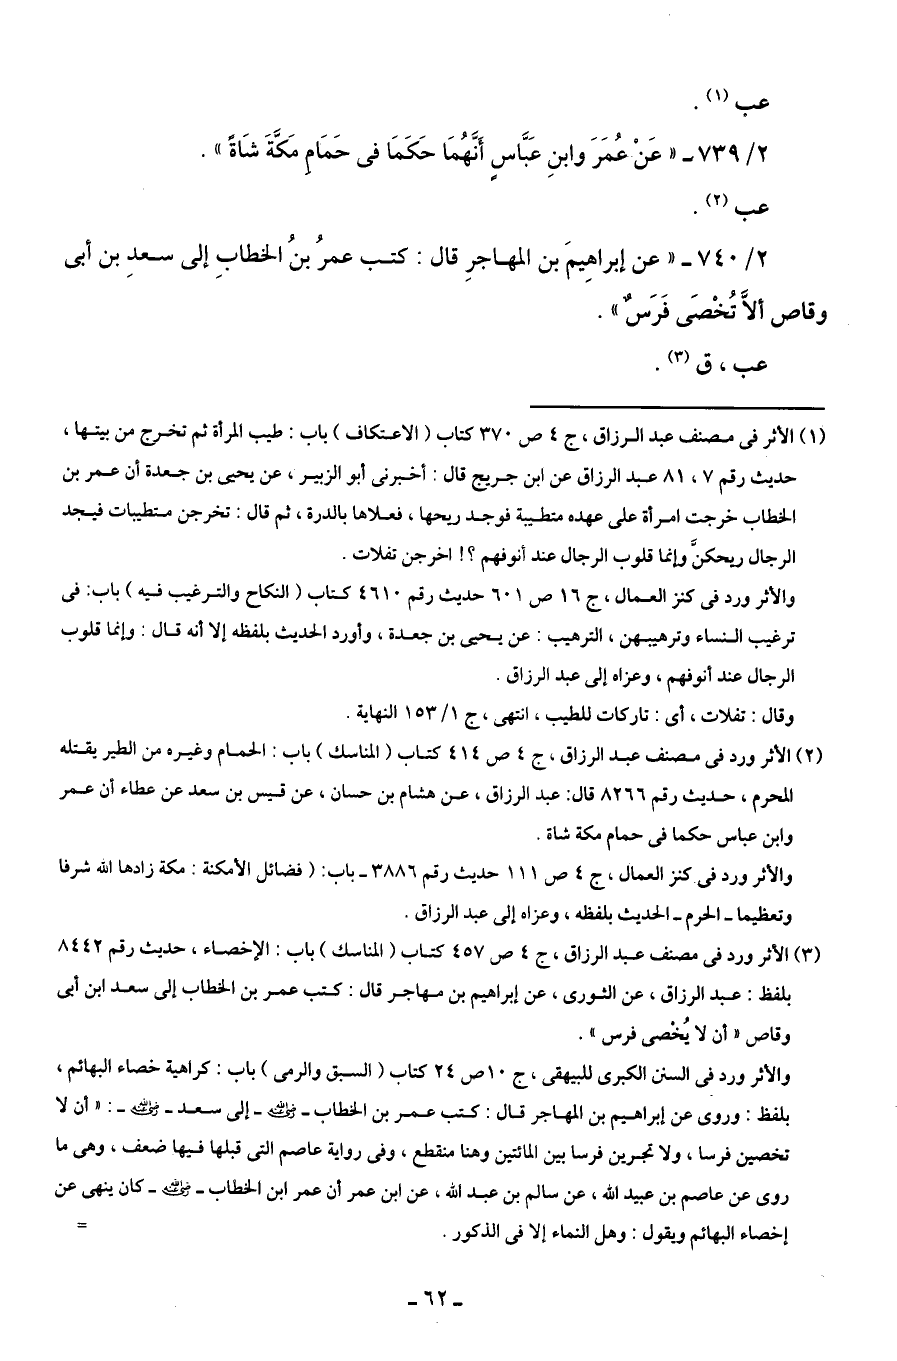 عب (١) .
٢/ ٧٣٩ ـ « عَنْ عُمَرَ وابنِ عَبَّاسٍ أَنَّهُمَا حَكَمَا فى حَمَامِ مَكَّةَ شَاةً » .
عب (٢) .
٢/ ٧٤٠ ـ « عن إبراهيمَ بن المهاجرِ قال : كتب عمرُ بنُ الخطابِ إلى سعدِ بن أبى
وقاص ألاَّ تُخْصَى فَرَسٌ » .
عب ، ق (٣) .
(١) الأثر فى مصنف عبد الرزاق ، ج ٤ ص ٣٧٠ كتاب ( الاعتكاف ) باب : طيب المرأة ثم تخرج من بيتها ،
حديث رقم ٧ ، ٨١ عبد الرزاق عن ابن جريج قال : أخبرنى أبو الزبير ، عن يحيى بن جعدة أن عمر بن
الخطاب خرجت امرأة على عهده متطيبة فوجد ريحها ، فعلاها بالدرة ، ثم قال : تخرجن متطيبات فيجد
الرجال ريحكنَّ وإنما قلوب الرجال عند أنوفهم ؟! اخرجن تفلات .
والأثر ورد فى كنز العمال ، ج ١٦ ص ٦٠١ حديث رقم ٤٦١٠ كتاب ( النكاح والترغيب فيه ) باب: فى
ترغيب النساء وترهيبهن ، الترهيب : عن يحيى بن جعدة ، وأورد الحديث بلفظه إلا أنه قال : وإنما قلوب
الرجال عند أنوفهم ، وعزاه إلى عبد الرزاق .
وقال : تفلات ، أى : تاركات للطيب ، انتهى ، ج ١/ ١٥٣ النهاية .
(٢) الأثر ورد فى مصنف عبد الرزاق ، ج ٤ ص ٤١٤ كتاب ( المناسك ) باب : الحمام وغيره من الطير يقتله
المحرم ، حديث رقم ٨٢٦٦ قال: عبد الرزاق ، عن هشام بن حسان ، عن قيس بن سعد عن عطاء أن عمر
وابن عباس حكما فى حمام مكة شاة .
والأثر ورد فى كنز العمال ، ج ٤ ص ١١١ حديث رقم ٣٨٨٦ ـ باب: ( فضائل الأمكنة : مكة زادها الله شرفا
وتعظيما ـ الحرم ـ الحديث بلفظه ، وعزاه إلى عبد الرزاق .
(٣) الأثر ورد فى مصنف عبد الرزاق ، ج ٤ ص ٤٥٧ كتاب ( المناسك ) باب : الإخصاء ، حديث رقم ٨٤٤٢
بلفظ : عبد الرزاق ، عن الثورى ، عن إبراهيم بن مهاجر قال : كتب عمر بن الخطاب إلى سعد ابن أبى
وقاص « أن لا يُخْصى فرس » .
والأثر ورد فى السنن الكبرى للبيهقى ، ج ١٠ص ٢٤ كتاب ( السبق والرمى ) باب : كراهية خصاء البهائم ،
بلفظ : وروى عن إبراهيم بن المهاجر قال : كتب عمر بن الخطاب ـ رضي الله عنه ـ إلى سعد ـ رضي الله عنه ـ : « أن لا
تخصين فرسا ، ولا تجرين فرسا بين المائتين وهنا منقطع ، وفى رواية عاصم التى قبلها فيها ضعف ، وهى ما
روى عن عاصم بن عبيد الله ، عن سالم بن عبد الله ، عن ابن عمر أن عمر ابن الخطاب ـ رضي الله عنه ـ كان ينهى عن
إخصاء البهائم ويقول : وهل النماء إلا فى الذكور . =
ـ ٦٢ ـ